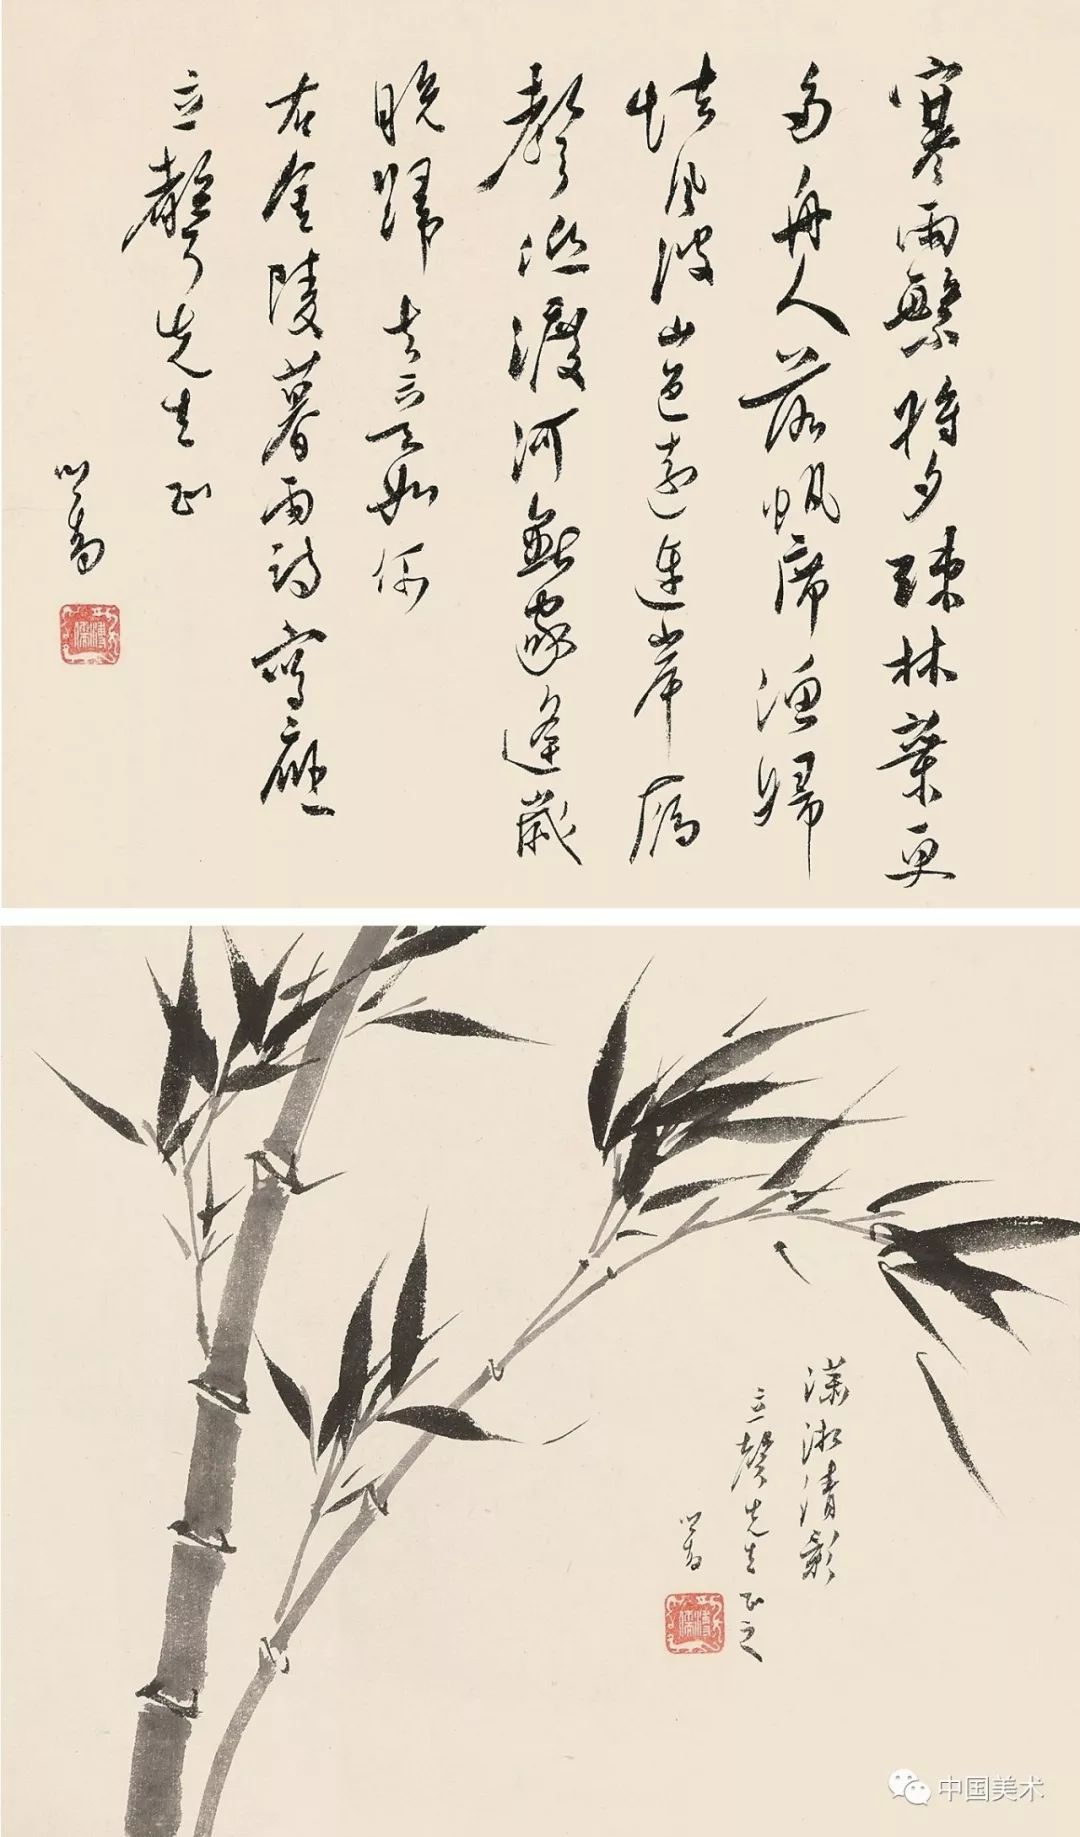 寒雨繁將夕疎林葉更
多舟人落帆席漁婦
怯風波山色遠連岸雁
聲渡河無家逢歲
晚歸去意如何
右金陵暮雨詩寫應
立聲先生正
心畬
溥儒
瀟湘清影
立聲先生正之
心畬
溥儒
中国美术